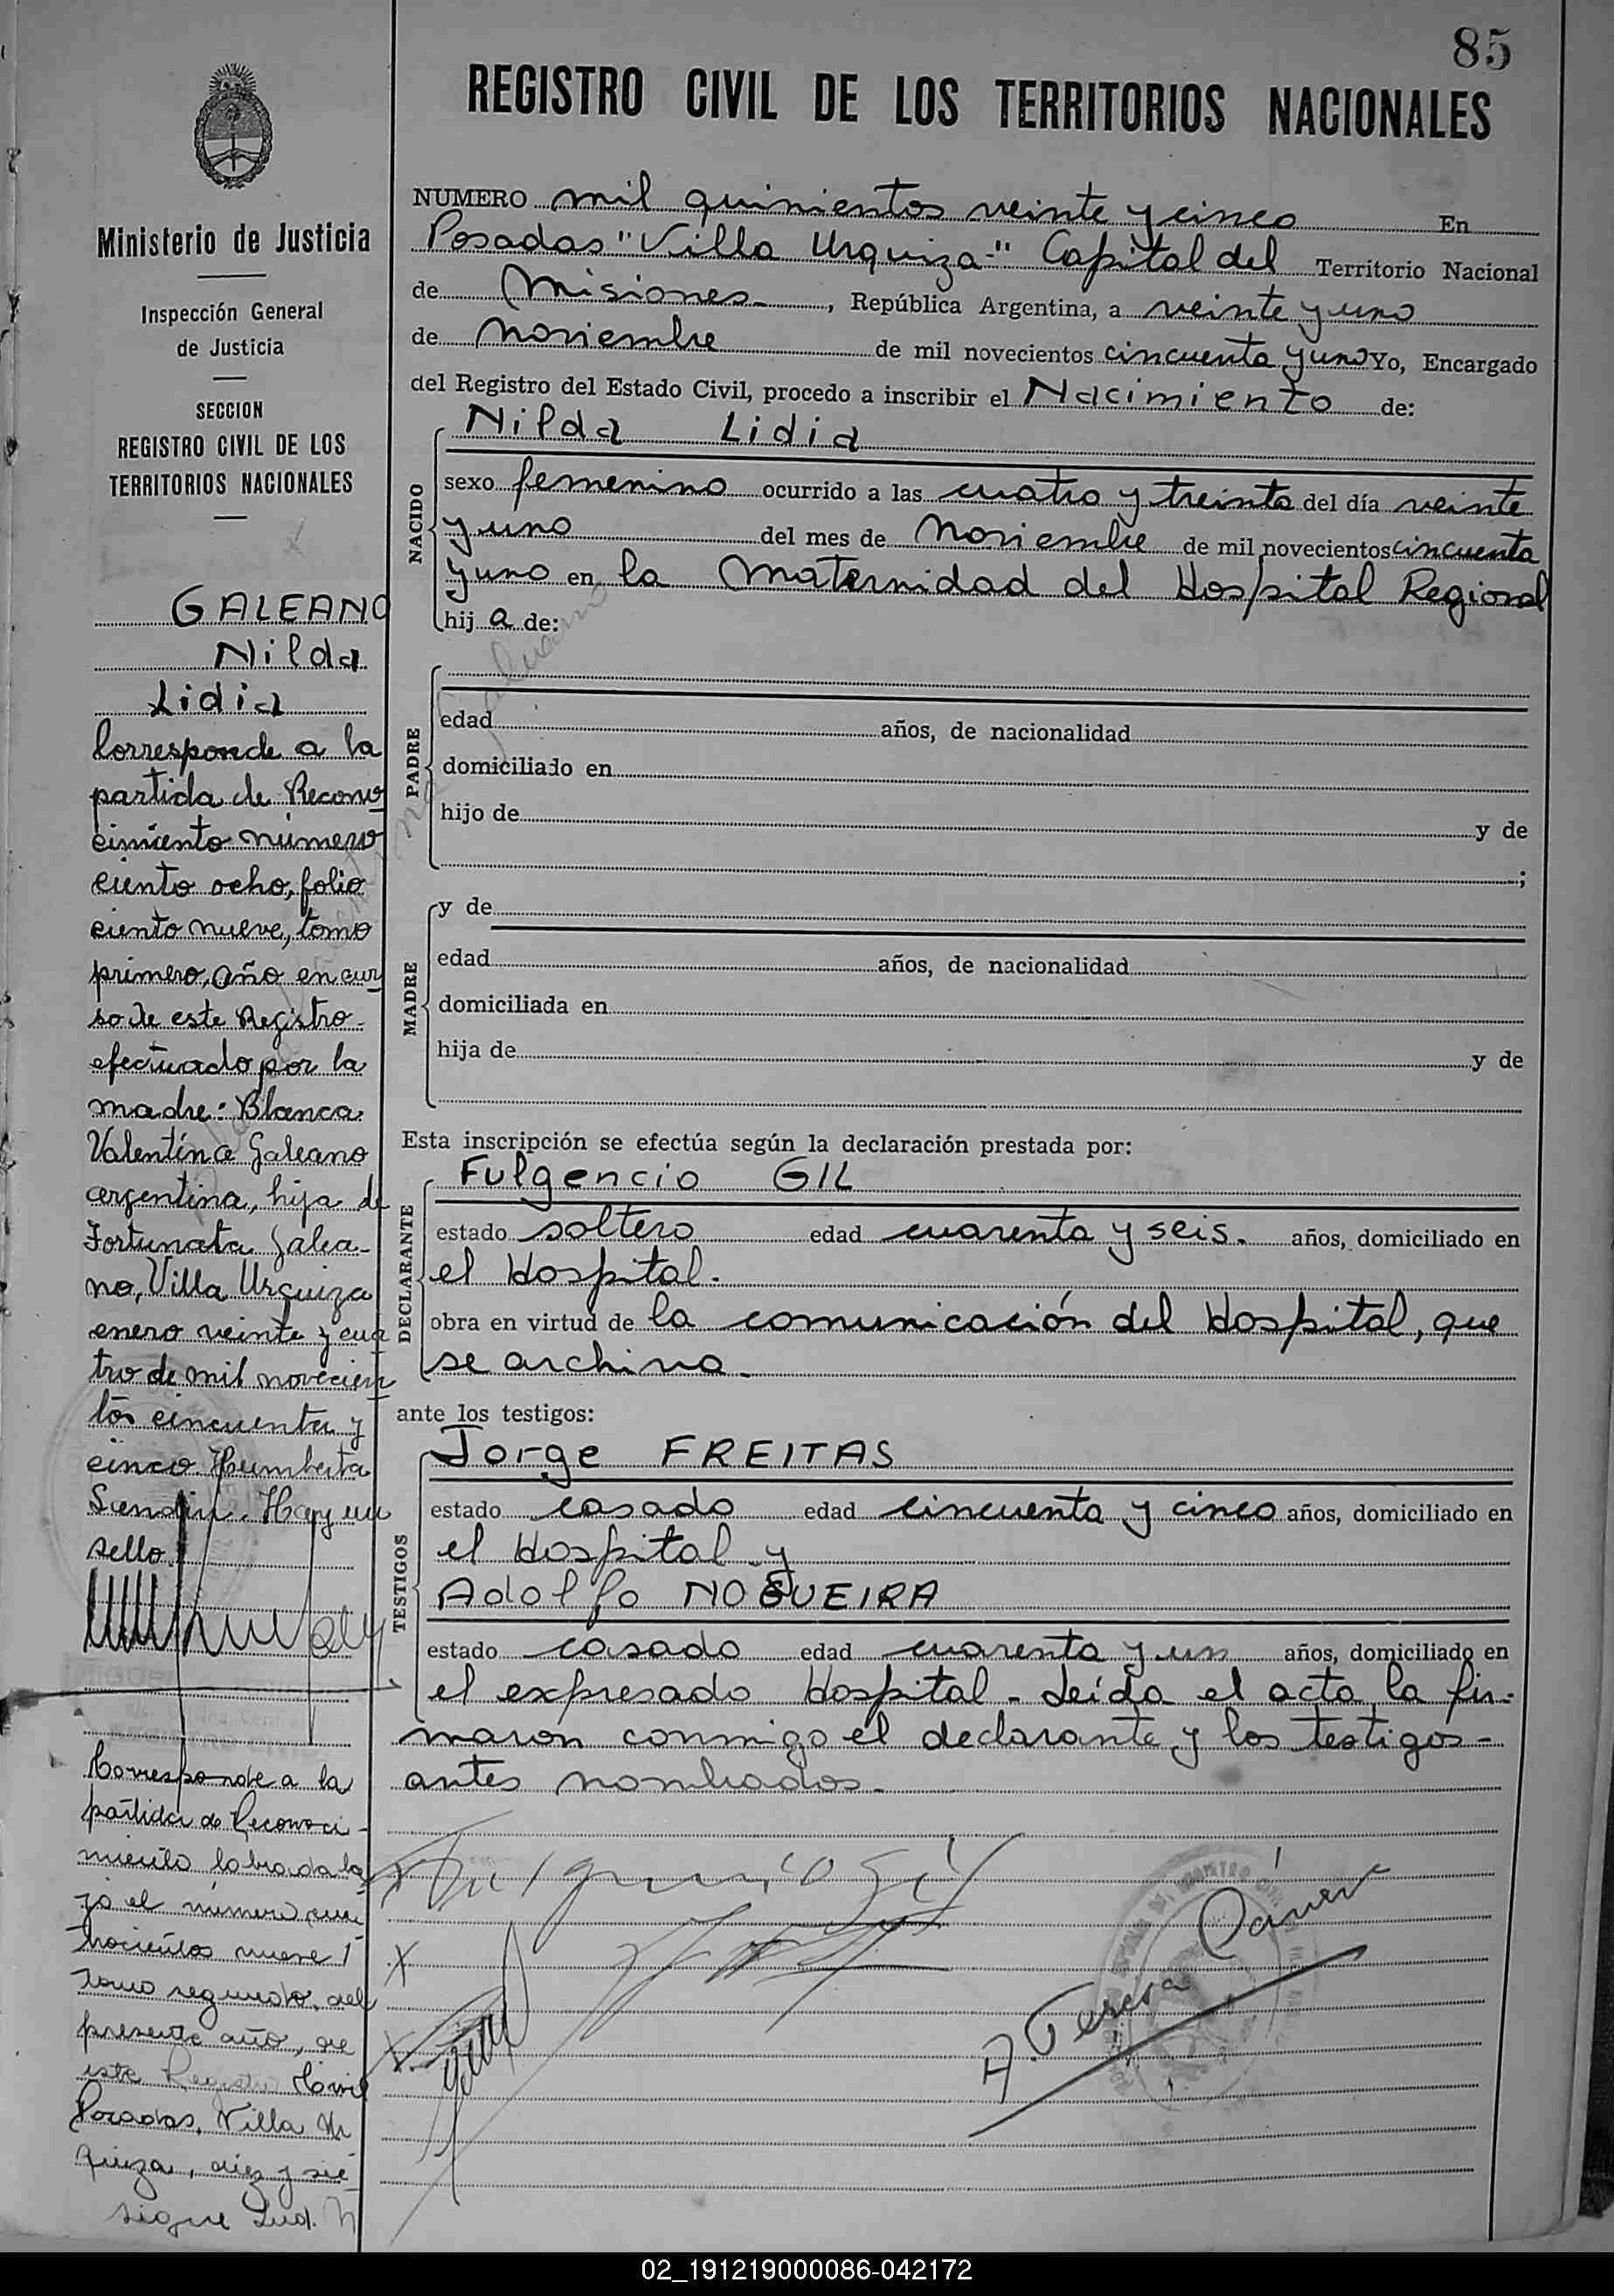 85
REGISTRO CIVIL DE LOS TERRITORIOS NACIONALES
Ministerio de Justicia
Inspección General
de Justicia
SECCION
REGISTRO CIVIL DE LOS
TERRITORIOS NACIONALES
GALEANO
Nilda
Lidia
Corresponde a la
partida de Recono
cimiento número
ciento ocho, folio
ciento nueve, tomo
primero, año en cur
so de este Registro.
efectuado por la
madre: Blanca
Valentina Galeano
argentina, hija de
Fortunata Galea-
no, Villa Urquiza
enero veinte y cua
tro de mil novecien
tos cincuenta y
cinco. Humberta
Hay un
sello.
Corresponde a la
partida de Reconoci-
miento labrada ba
jo el número cua
trocientos nueve
tomo segundo, del
presente año, de
este Registro Civil
Posadas, Villa Ur
quiza, diez y sie
sigue Ind.
NUMERO mil quinientos veinte y cinco En
Posadas "Villa Urquiza-" Capital del Territorio Nacional
de Misiones-, República Argentina, a veinte y uno
de Noviembre de mil novecientos cincuenta y uno Yo, Encargado
del Registro del Estado Civil, procedo a inscribir el Nacimiento de:
Nilda Lidia
NACIDO
sexo femenino ocurrido a las cuatro y treinta del día veinte
y uno del mes de Noviembre de mil novecientos cincuenta
y uno en la Maternidad del Hospital Regional
hij a de:
PADRE
edad años, de nacionalidad
domiciliado en
hijo de y de
;
MADRE
y de
edad años, de nacionalidad
domiciliada en
hija de y de
Esta inscripción se efectúa según la declaración prestada por:
DECLARANTE
Fulgencio GIL
estado soltero edad cuarenta y seis. años, domiciliado en
el Hospital.
obra en virtud de la comunicación del Hospital, que
se archiva.
ante los testigos:
TESTIGOS
Jorge FREITAS
estado casado edad cincuenta y cinco años, domiciliado en
el Hospital y
Adolfo NOGUEIRA
estado casado edad cuarenta y un años, domiciliado en
el expresado Hospital. Leída el acta, la fir-
maron conmigo el declarante y los testigos-
antes nombrados.
Fulgencio Gil
X
X
02_191219000086-042172